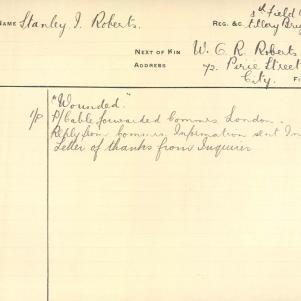 NAME Stanley I. Roberts.
REG. &C.
8th Field
tillery Brig
NEXT OF KIN W. G. R. Roberts
ADDRESS 72. Pirie Street
City.
"Wounded."
Cable forwarded Commrs London.
Reply from Commrs. Information sent
Letter of thanks from Inquirer